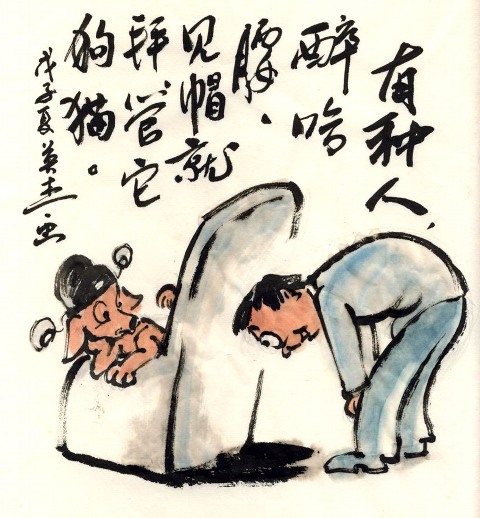 有种人,
醉哈
腰、
见帽就
拜管它
狗猫。
戊子夏英杰画